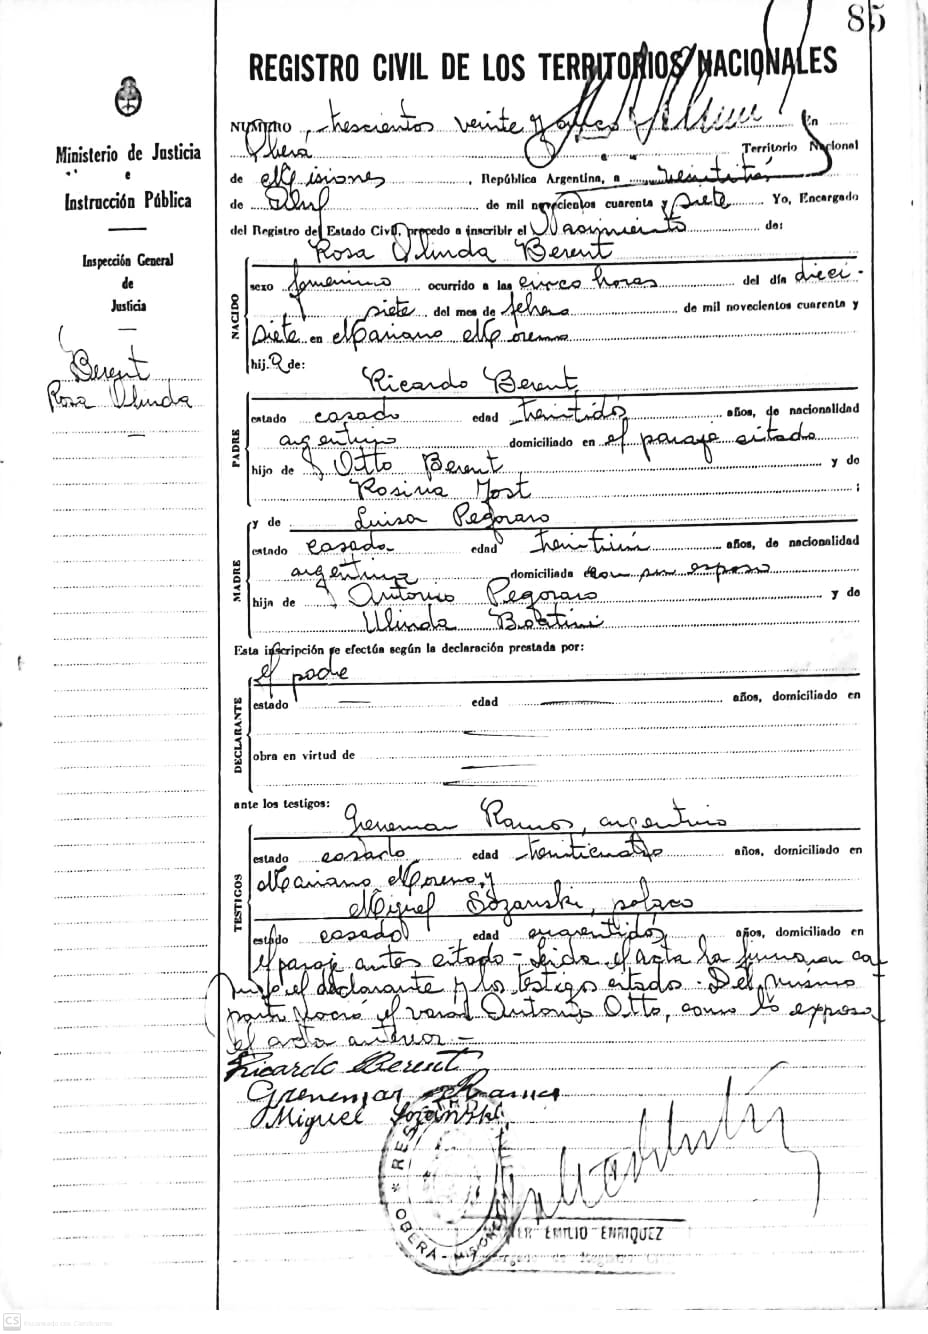 85
REGISTRO CIVIL DE LOS TERRITORIOS NACIONALES
Ministerio de Justicia
e
Instrucción Pública
Inspección General
de
Justicia
Berent
Rosa Olinda
NUMERO, trescientos veinte y cinco En
Oberá Territorio Nacional
de Misiones, República Argentina, a veintitrés
de Abril de mil novecientos cuarenta y siete Yo, Encargado
del Registro del Estado Civil, procedo a inscribir el Nacimiento de:
Rosa Olinda Berent
NACIDO
sexo femenino ocurrido a las cinco horas del día dieci-
siete del mes de febrero de mil novecientos cuarenta y
siete en Mariano Moreno
hij.a de:
Ricardo Berent
PADRE
estado casado edad treintidós años, de nacionalidad
argentino domiciliado en el paraje citado
hijo de Otto Berent y de
Rosina Jost ;
y de Luisa Pegoraro
MADRE
estado casada edad treintiún años, de nacionalidad
argentina domiciliada con su esposo
hija de Antonio Pegoraro y de
Olinda Bortini
Esta inscripción se efectúa según la declaración prestada por:
el padre
DECLARANTE
estado edad años, domiciliado en
obra en virtud de
ante los testigos:
Grenemar Ramos, argentino
TESTIGOS
estado casado edad treinticuatro años, domiciliado en
Mariano Moreno, y
Miguel Sozanski, polaco
estado casado edad cuarentidós años, domiciliado en
el paraje antes citado - Leida el acta la firmaron con
migo el declarante y los testigos citados - Del mismo
parto nació el varón Antonio Otto, como lo expresa
el acta anterior -
Ricardo Berent
Grenemar Ramos
Miguel Sozanski
OBERA - MISIONES
EMILIO ENRIQUEZ
CS Escaneado con CamScanner